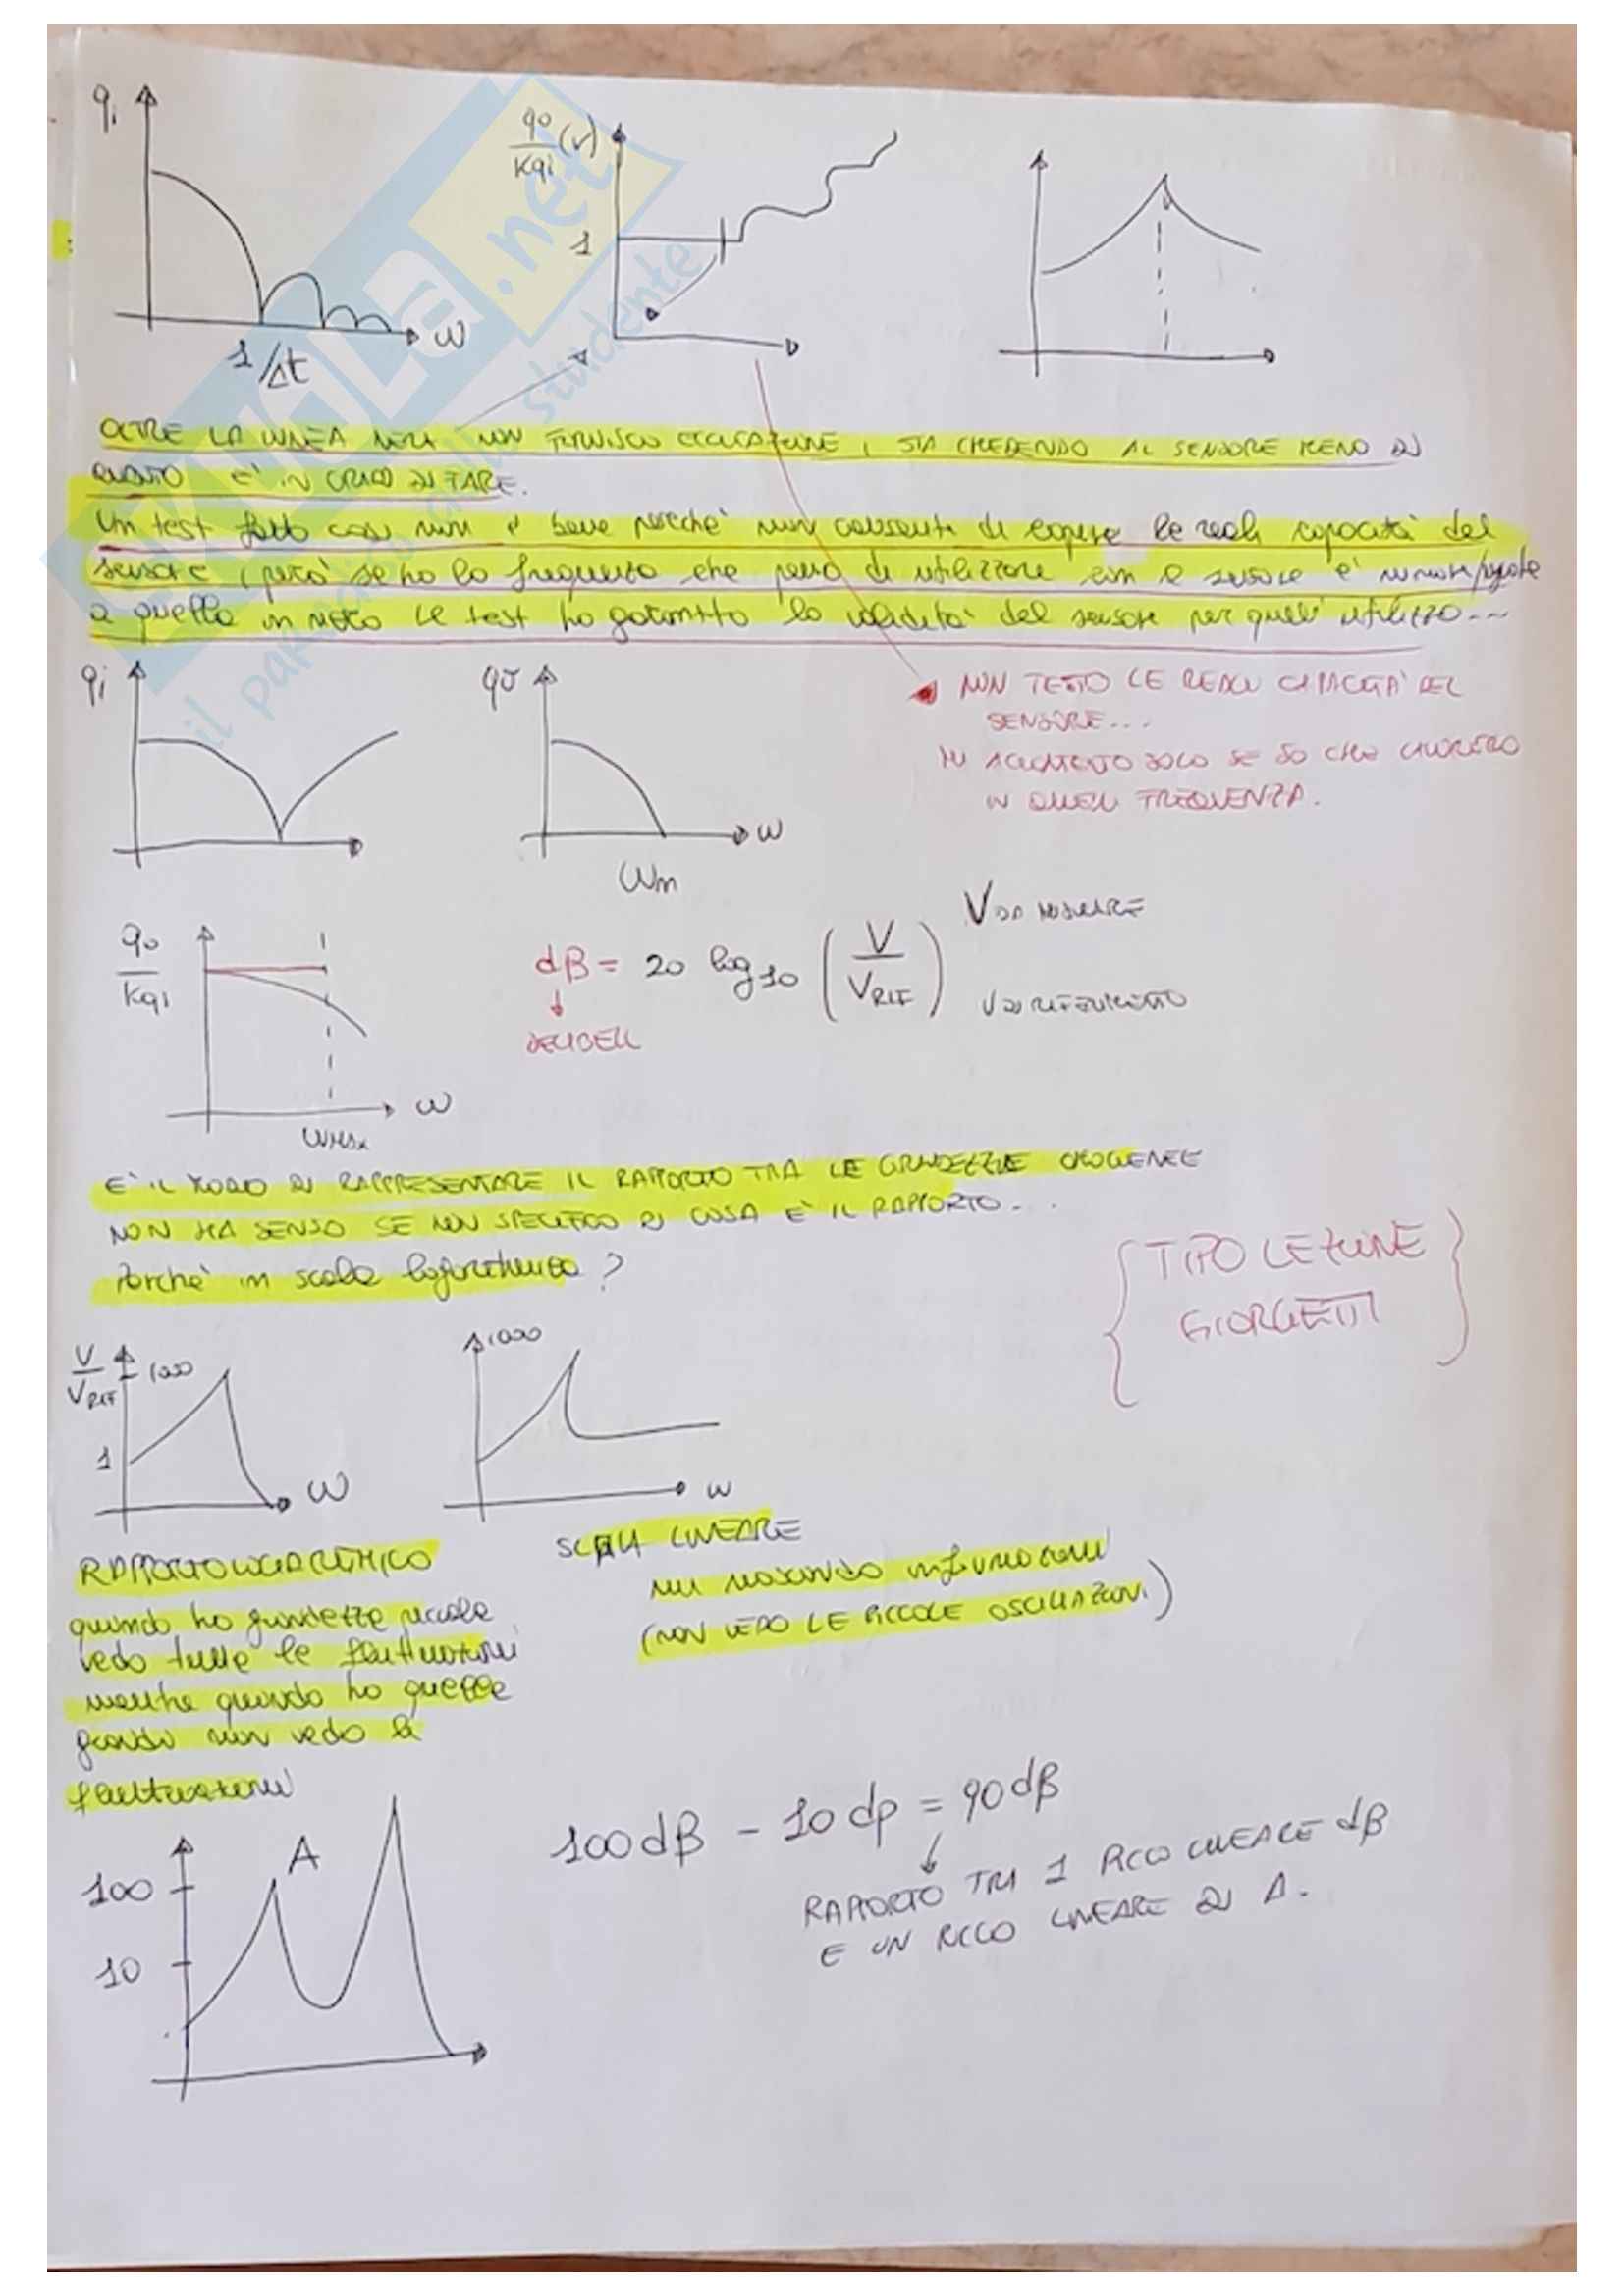 qi
qo
Kqi
(v)
1
ω
1/Δt
OLTRE LA LINEA NERA NON FORNISCO ECCITAZIONE, STA CHIEDENDO AL SENSORE MENO DI
QUANTO E' IN GRADO DI FARE.
Un test fatto così non è bene perchè non consente di capire le reali capacità del
sensore, però se ho la frequenza che penso di utilizzare con il sensore è minore/uguale
a quella in moto il test ho garantito la validità del sensore per quell'utilizzo...
qi
qo
NON TESTO LE REALI CAPACITA' DEL
SENSORE...
MI ACCONTENTO SOLO SE SO CHE LAVORERO
IN QUELLA FREQUENZA.
ω
ωm
V DA MISURARE
qo
Kqi
dB = 20 log10 (V/VRIF)
V DI RIFERIMENTO
DECIBELL
ω
ωMax
E' IL MODO DI RAPPRESENTARE IL RAPPORTO TRA LE GRANDEZZE OMOGENEE
NON HA SENSO SE NON SPECIFICO DI COSA E' IL RAPPORTO...
Perchè in scala logaritmica?
{TIPO LEZIONE
GIORGETTI}
V
VRIF
1000
1
ω
1000
ω
RAPPORTO LOGARITMICO
SCALA LINEARE
quando ho grandezze piccole
vedo tutte le fluttuazioni
mentre quando ho quelle
grandi non vedo le
fluttuazioni
mi nascondo informazioni
(NON VEDO LE PICCOLE OSCILLAZIONI)
100
10
A
100dB - 10dB = 90dB
RAPPORTO TRA 1 PICCO LINEARE dB
E UN PICCO LINEARE DI A.
SKUOLA.net
il paradiso dello studente